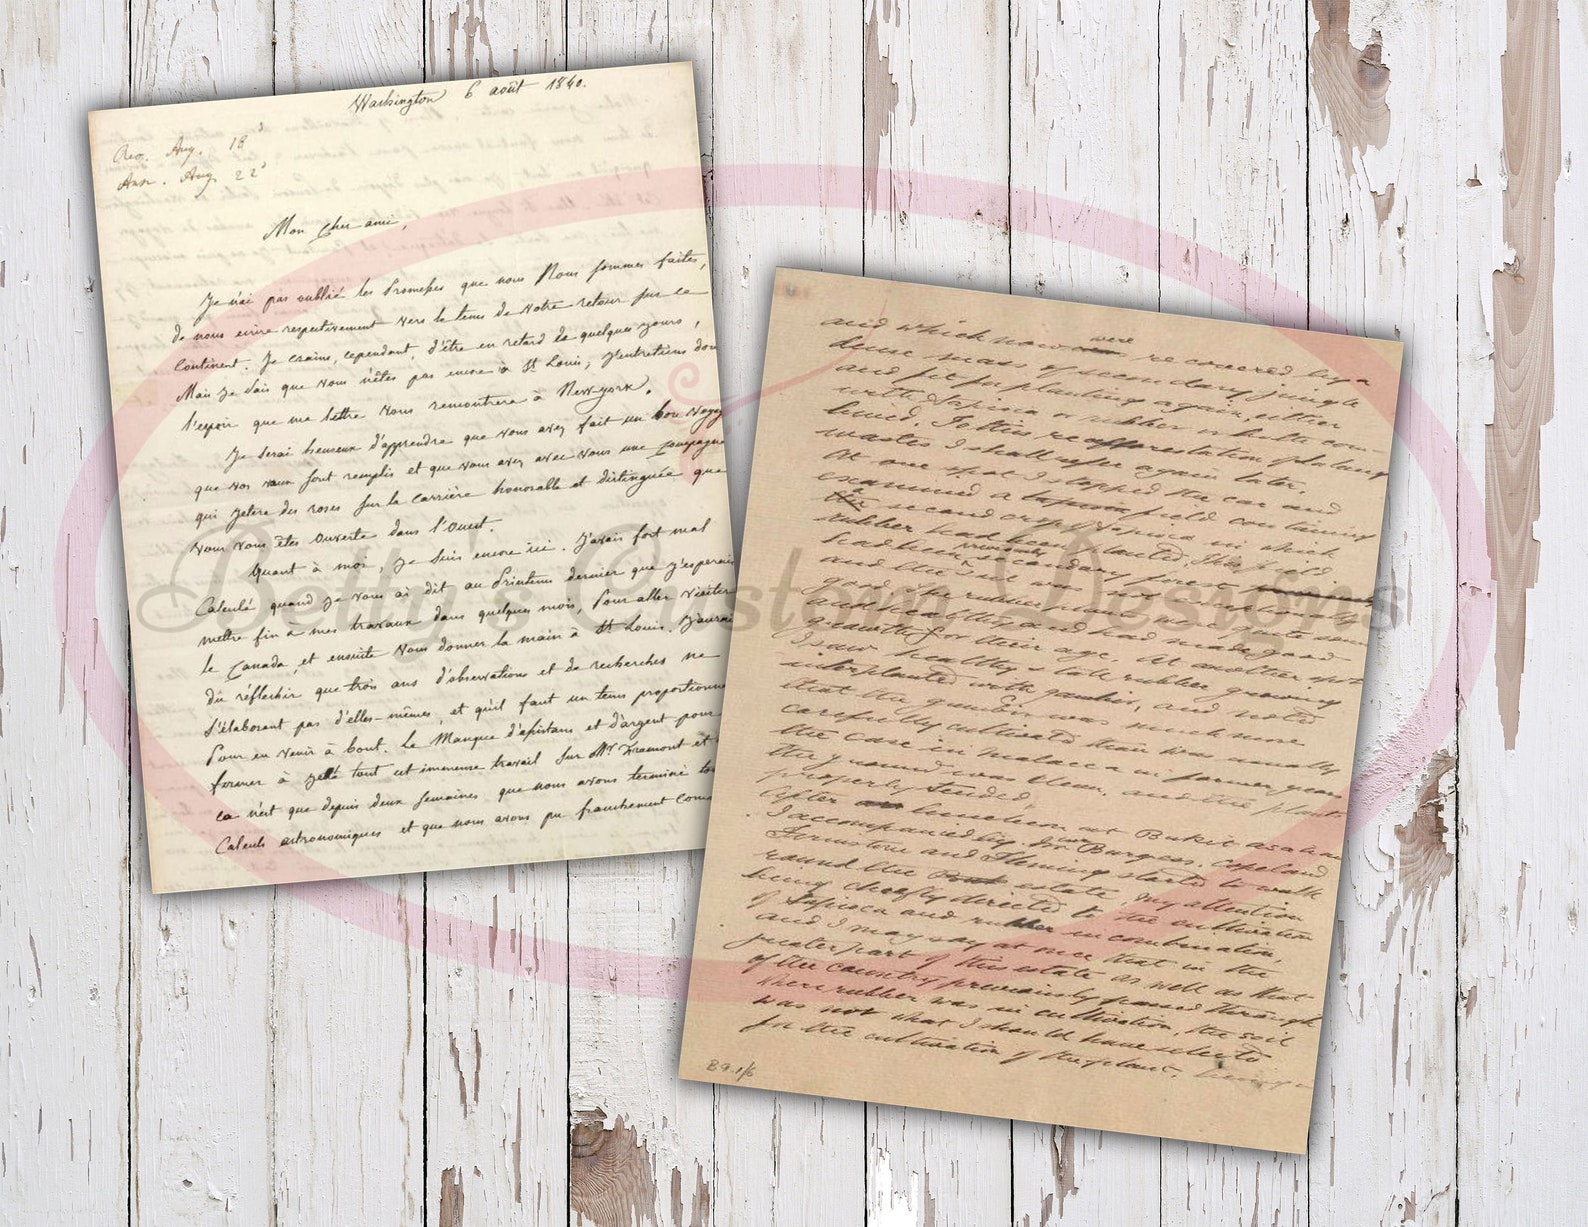 Washington 6 août 1840.
Rec. Aug. 18
Ansr. Aug. 22
Mon cher ami,
Je n'ai pas oublié les Promesses que nous Nous sommes faites,
de nous écrire respectivement vers le tems de Notre retour sur ce
Continent. Je crains, cependant, d'être en retard de quelques jours,
Mais je sais que vous n'êtes pas encore à St Louis, J'entretiens donc
l'espoir que ma lettre vous rencontrera à New-york.
Je serai heureux d'apprendre que vous avez fait un bon voyage
que vos vœux sont remplis et que vous avez avec vous une compagne
qui jetera des roses sur la carrière honorable et distinguée que
vous vous êtes ouverte dans l'Ouest.
Quant à moi, je suis encore ici. J'avais fort mal
Calculé quand je vous ai dit au Printems dernier que j'esperais
mettre fin à mes travaux dans quelques mois, Pour aller visiter
le Canada, et ensuite vous donner la main à St Louis. J'aurais
dû réfléchir que trois ans d'observations et de recherches ne
s'élaborent pas d'elles-mêmes, et qu'il faut un tems proportionné
Pour en venir à bout. Le Manque d'assistans et d'argent pour
former à jeté tout cet immense travail sur Mr Fremont et
ce n'est que depuis deux semaines que nous avons terminé
Calculs astronomiques et que nous avons pu franchement
and which now were re covered by a
dense mass of secondary jungle
and fit for planting again, either
with tapioca or rubber or both com-
bined. To this reafforestation of lalang
wastes I shall refer again later.
At one spot I stopped the car and
examined a tapioca field containing
a second crop of tapioca in which
rubber had been planted. This field
had been secondary forest
and the soil was not exceptionally
good. The rubber plants were quite sound
and healthy and had made good
growth for their age. At another spot
I saw healthy & tall rubber growing
interplanted with gambier, and noted
that the gambier was much more
carefully cultivated than was usually
the case in Malacca in former years
the ground was clean, and the plants
properly tended.
After luncheon at Bukit Asahan
I accompanied by Burgess, Copeland
and Fleming started to walk
round the estate, my attention
being chiefly directed to the cultivation
of tapioca and rubber in combination,
and I may say at once that in the
greater part of this estate as well as that
of the country previously passed through
where rubber was in cultivation, the soil
was not what I should have selected
for the cultivation of the plant.
B9.1/6
Betty's Custom Designs